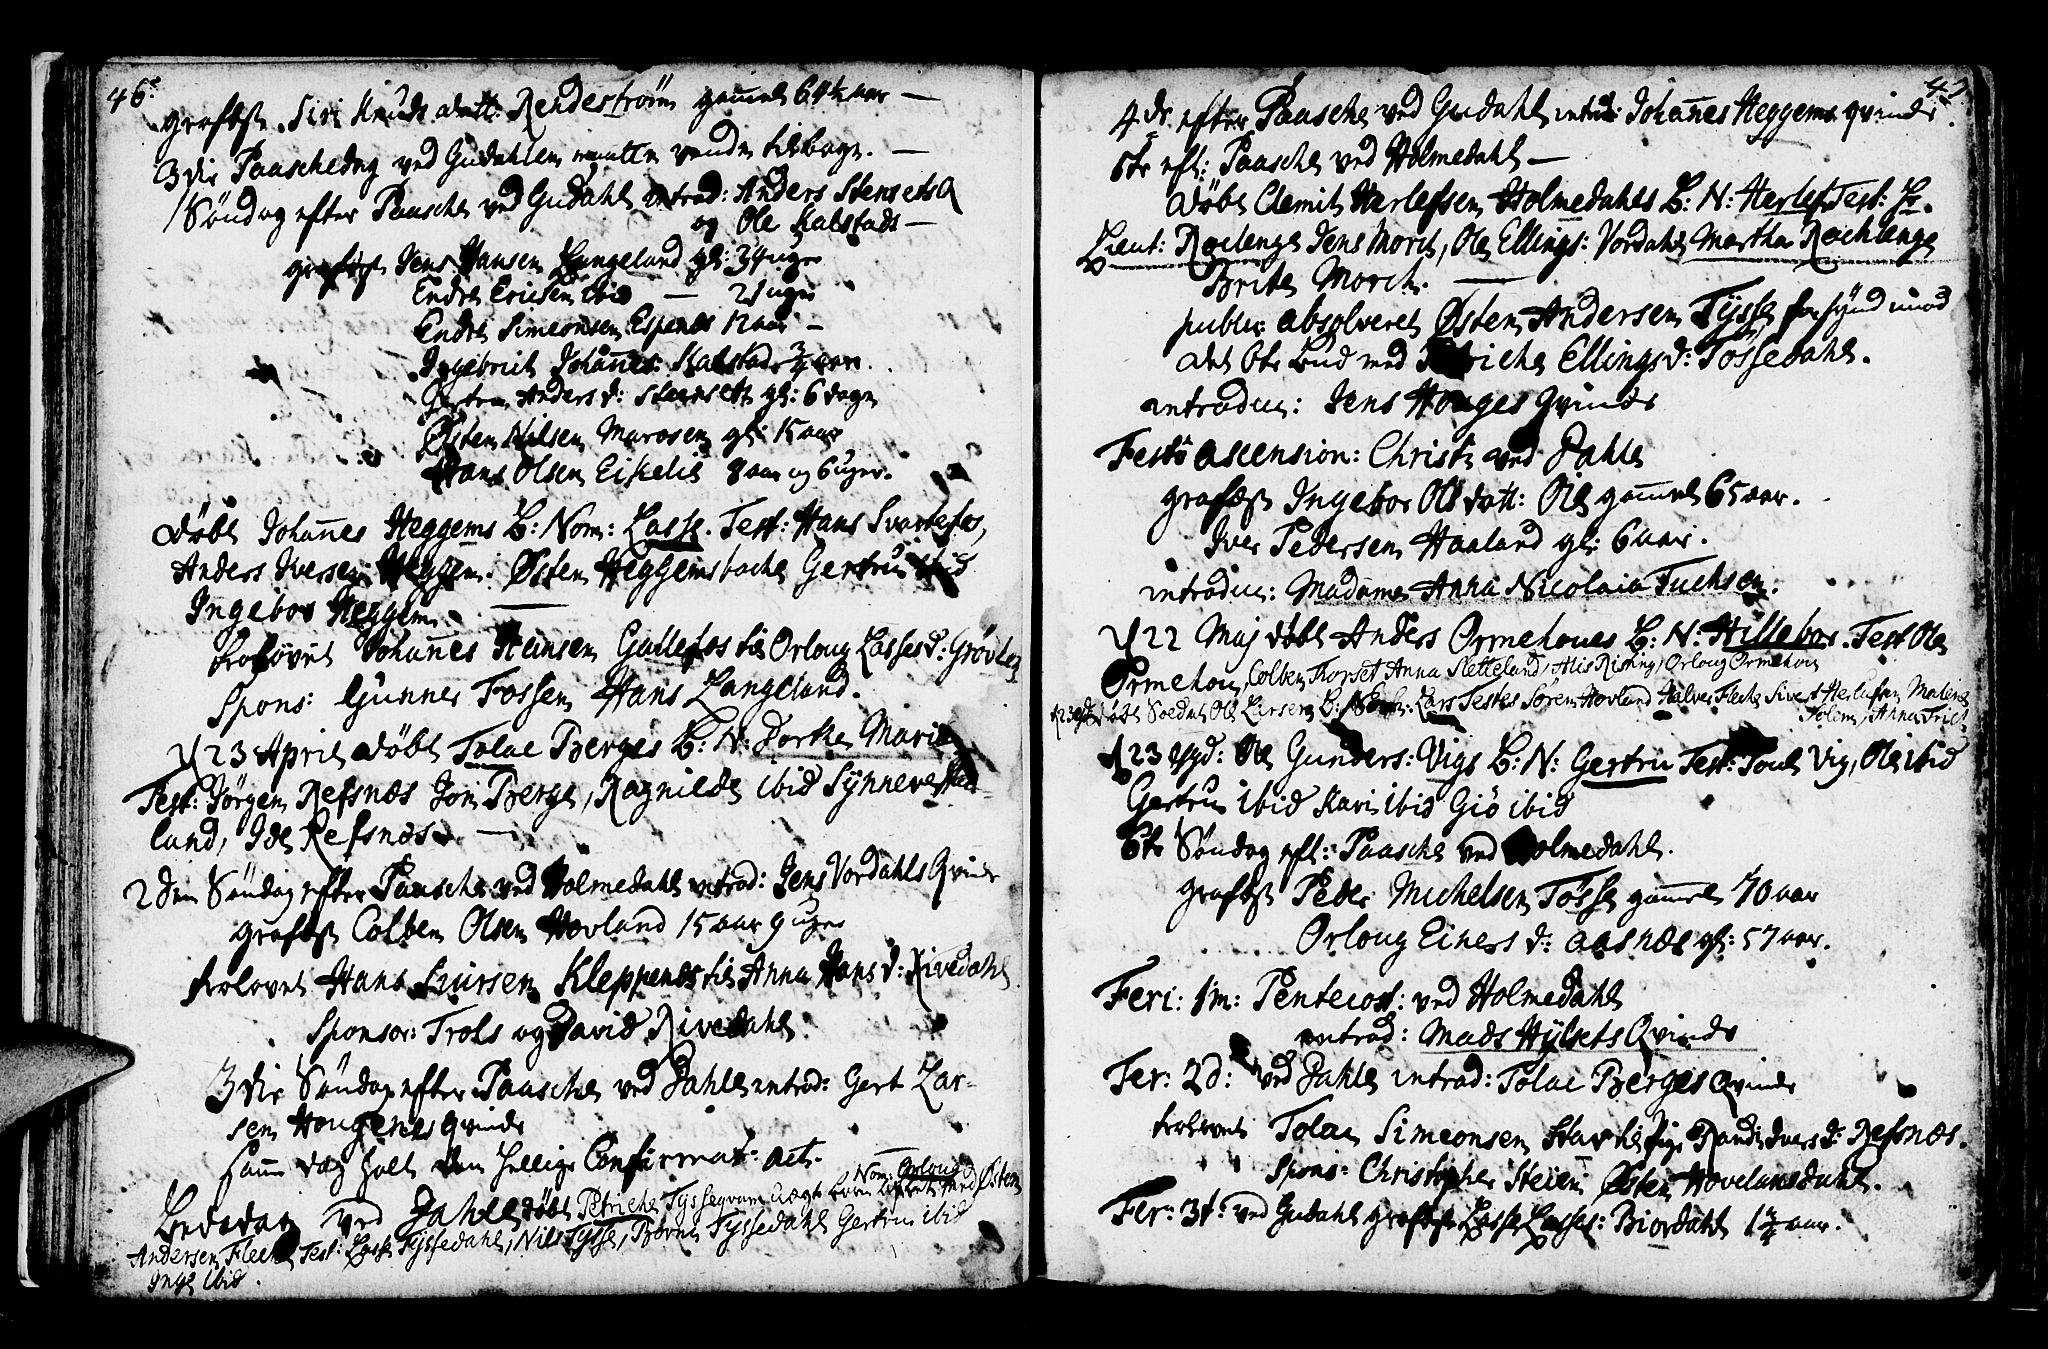 46.
grafæst Siri Knuds datt: Rendestrøm gamel 64½ aar —
3die Paaschedag ved Gudahlen maatte vende tilbage. —
1 Søndag efter Paasche ved Gudahl introd: Anders Stensets Q
og Ole Kalstads —
grafæst Jens Hansen Langeland gl: 34 uger
Endre Ericsen ibid — 21 uger
Endre Simeonsen Espenæs 12 aar —
Ingebrict Johannes: Kalstad ¾ aar.
Gertru Anders d: Steensett gl: 6 dage
Østen Nilsen Marøsen gl: 15 aar
Hans Olsen Eikelie 8 aar og 6 uger.
døbt Johannes Heggems B: Nom: Lasse. Test: Hans Svartefos,
Anders Iversen Heggem: Østen Heggemsbache Gertru ibid
Ingebor Heggem. —
trolovet Johannes Hansen Gullefos til Orloug Lasses d: Grøvlen
Spons: Gunner Fossen Hans Langeland.
d 23 April døbt Tolae Berges B: N: Dorthe Marie
Test: Jørgen Refsnæs Jon Berge, Ragnilde ibid Synneve
land, Ide Refsnæs. —
2den Søndag efter Paasche ved Holmedahl introd: Jens Vordahls Qvinde
grafæst Colben Olsen Hovland 15 aar 9 uger
trolovet Hans Siursen Kleppenæs til Anna Hans d: Rivedahl
Sponsor: Trols og David Rivedahl.
3die Søndag efter Paasche ved Dahle introd: Gert Lar-
sen Hougenes qvinde
samme dag holt den hellige Confirmat: act. —
Nom: Orloug
Bededag ved Dahle døbt Petriche Tyssequam uægte Barn aulet med Østen
Andersen Flecke Test: Lasse Tyssedahl, Nils Tysse, Brønne Tyssedahl Gertru ibid
Inge ibid.
47.
4de efter Paasche ved Gudahl introd: Johannes Heggems qvinde.
5te eft: Paasche ved Holmedahl —
døbt Clemit Herlefsen Holmedahls B: N: Herlef. Test: Hr.
Lieut: Roelenge Jens Morch, Ole Ellings: Vordahl Martha Rochlenge
Brite Morch. —
public: absolveret Østen Andersen Tysse for synd imod
det 6te bud med Petriche Ellings d: Tössedahl.
introduc: Jens Houges Qvinde
Festo ascension: Christi ved Dahle
grafæst Ingebor Ols datt: Ole gammel 65 aar.
Iver Pedersen Haaland gl: 6 aar.
introduc: Madame Anna Nicolaia Fuchsen.
d 22 Maj døbt Anders Ormehoues B: N: Hillebor. Test Ole
Ormehou, Colben Thorset Anna Sletteland, Alis Rising, Orloug Ormehou
d 23 døbt Soedat Ole Larsens B: Nom: Lars Testes Sören Hovland Halvor Flecke Sivert Herlufsen Malene
Solem, Anna Trict
d 23 ejsd: Ole Gunders: Vigs B: N: Gertru Test: Poul Vig, Ole ibid
Gertru ibid Kari ibid Giö ibid
6te Søndag eft: Paasche ved Holmedahl.
grafæst Peder Michelsen Tösse gammel 70 aar
Orloug Einers d: Aasnæs gl: 57 aar.
Feri: 1m: Pentecost: ved Holmedahl
introd: Mads Hylsets Qvinde
Fer: 2d: ved Dahle introd: Tolae Berges Qvinde
trolovet Tolae Simeonsen Stavki Pige Randi Ivers d: Refsnæs.
Spons: Christopher Steien Østen Hovelandsdahl.
Fer: 3t: ved Gudahl grafæst Lasse Lasses: Biordahl 1¼ aar.